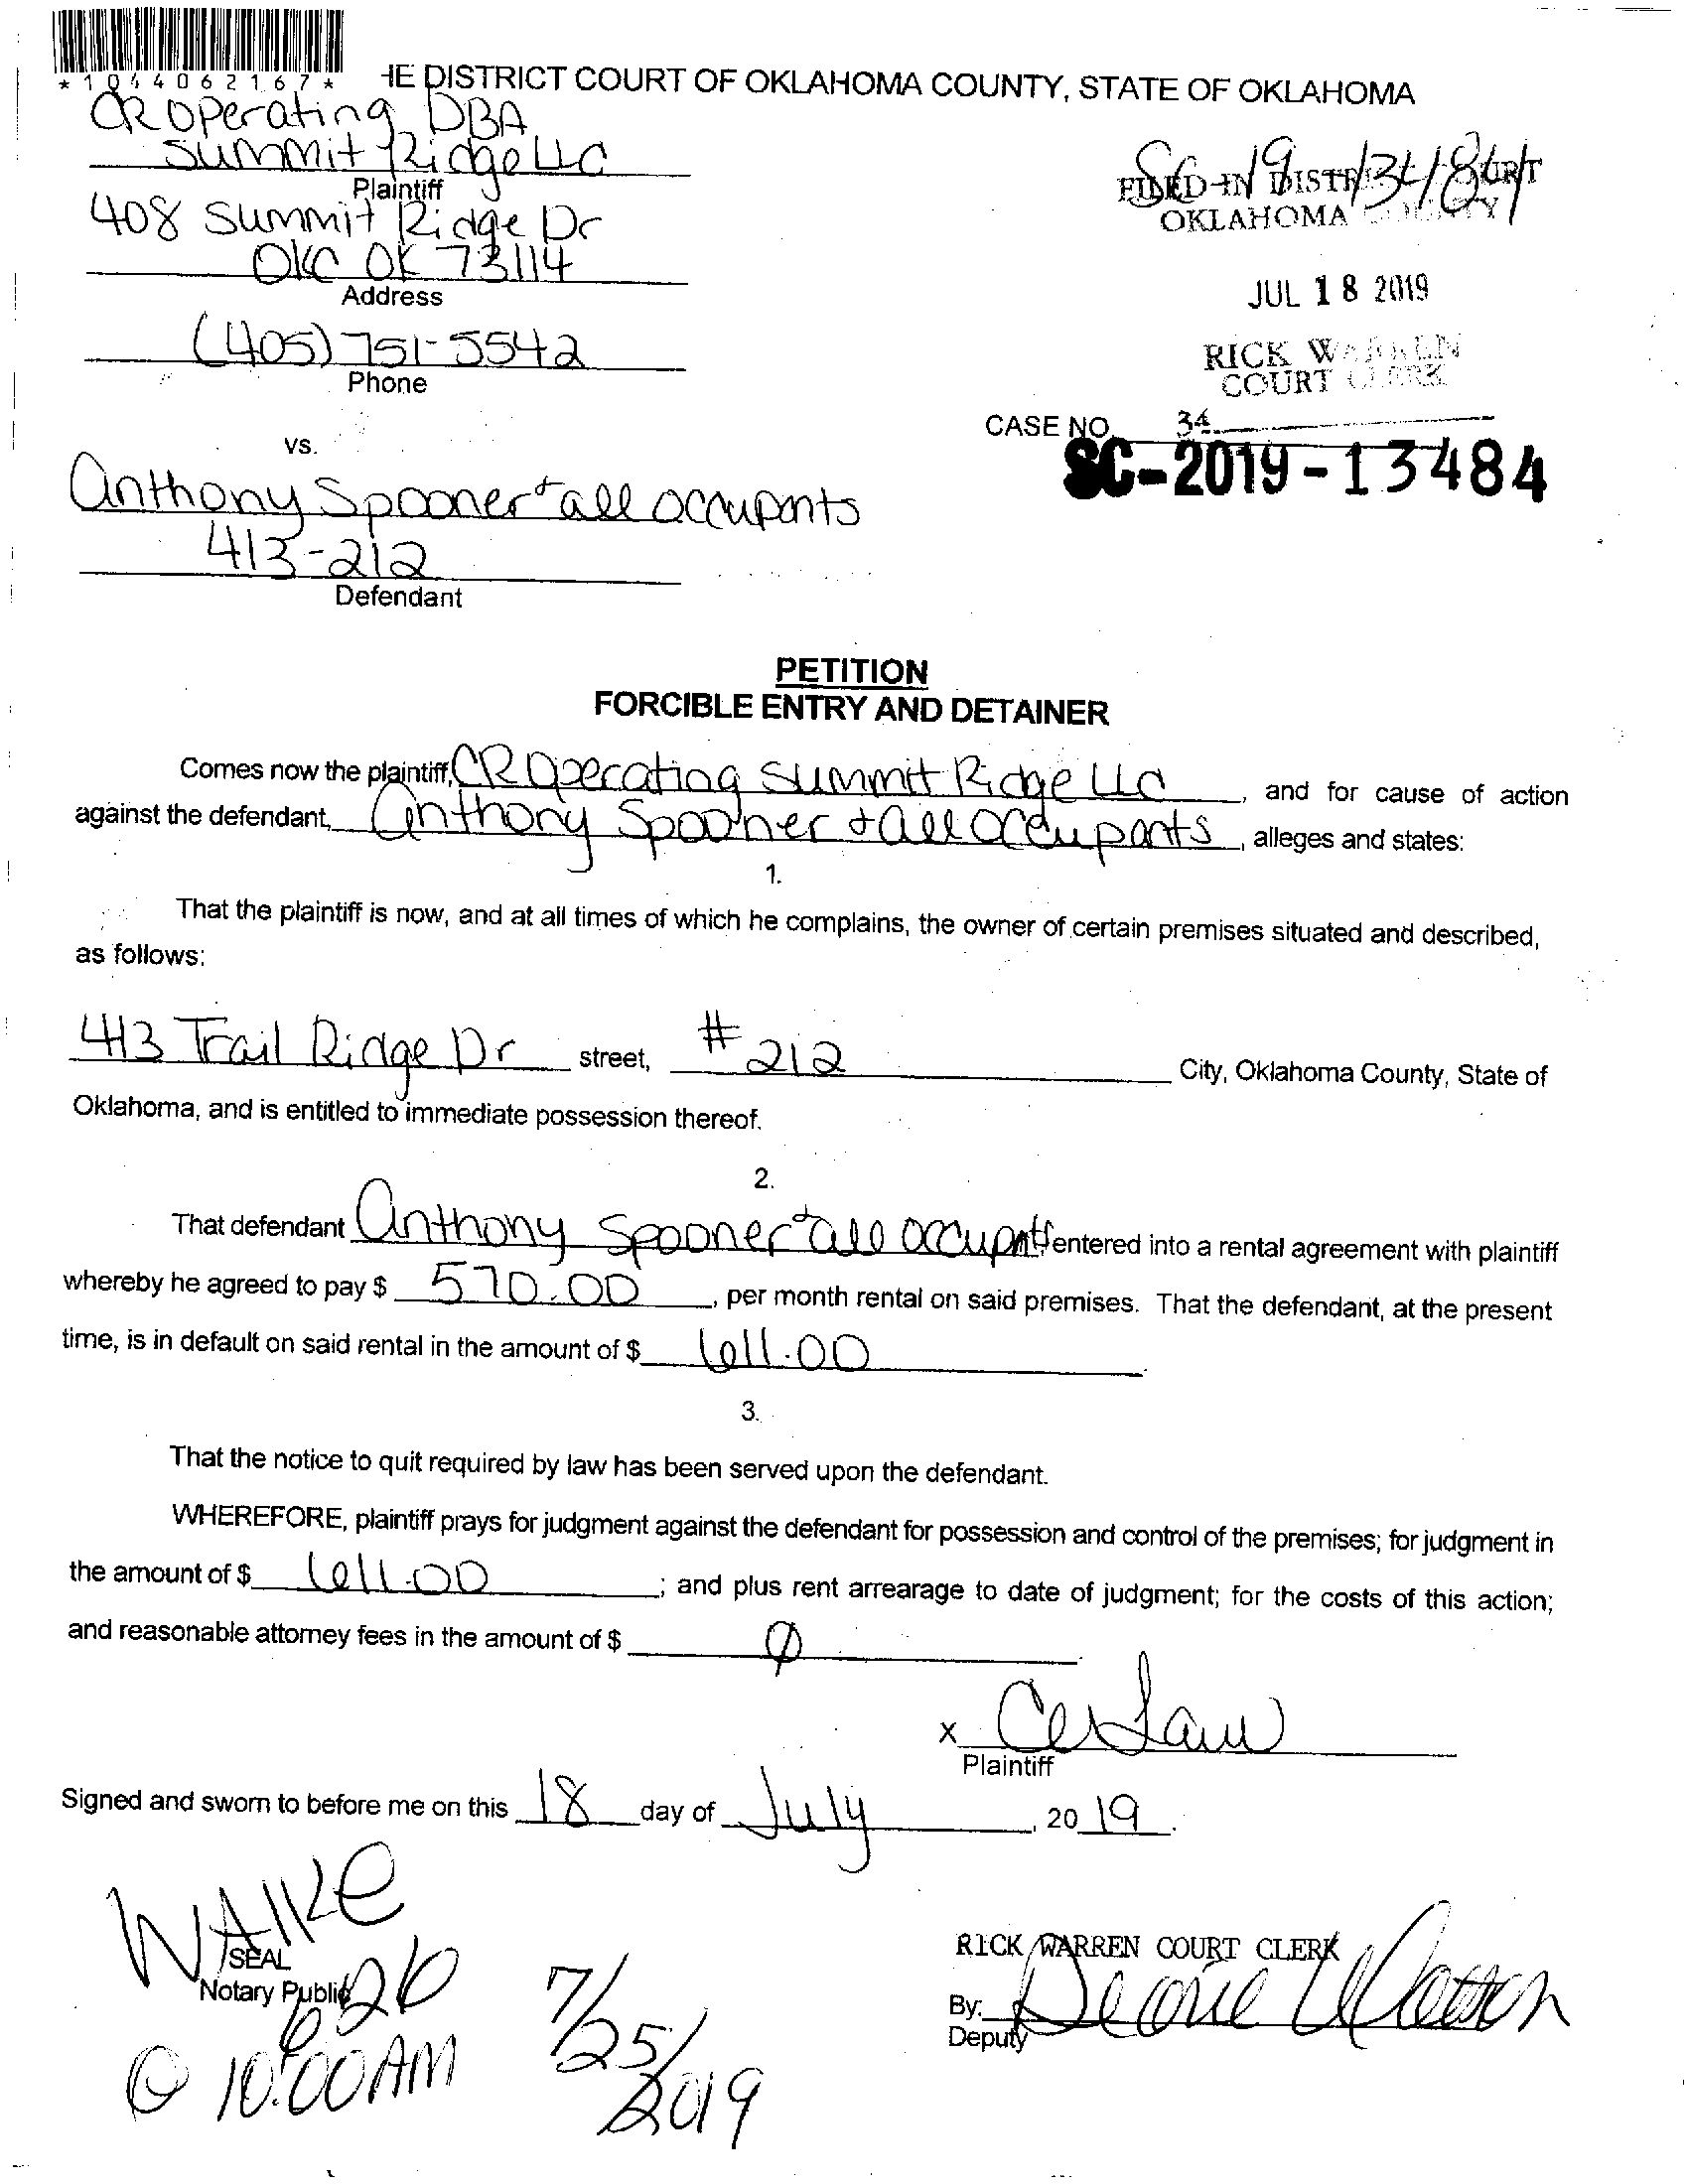 *1044062167*
HE DISTRICT COURT OF OKLAHOMA COUNTY, STATE OF OKLAHOMA
CR Operating DBA
Summit Ridge LLC
Plaintiff
408 Summit Ridge Dr
OKC OK 73114
Address
(405) 751-5542
Phone
SC-19-13484
FILED IN DISTRICT COURT
OKLAHOMA COUNTY
JUL 18 2019
RICK WARREN
COURT CLERK
34
CASE NO.
SC-2019-13484
vs.
Anthony Spooner + all occupants
413-212
Defendant
PETITION
FORCIBLE ENTRY AND DETAINER
Comes now the plaintiff, CR Operating Summit Ridge LLC, and for cause of action
against the defendant, Anthony Spooner + all occupants, alleges and states:
1.
That the plaintiff is now, and at all times of which he complains, the owner of certain premises situated and described,
as follows:
413 Trail Ridge Dr street, #212 City, Oklahoma County, State of
Oklahoma, and is entitled to immediate possession thereof.
2.
That defendant Anthony Spooner + all occupants entered into a rental agreement with plaintiff
whereby he agreed to pay $ 570.00, per month rental on said premises. That the defendant, at the present
time, is in default on said rental in the amount of $ 611.00
3.
That the notice to quit required by law has been served upon the defendant.
WHEREFORE, plaintiff prays for judgment against the defendant for possession and control of the premises; for judgment in
the amount of $ 611.00; and plus rent arrearage to date of judgment; for the costs of this action;
and reasonable attorney fees in the amount of $ Ø
X
Plaintiff
Signed and sworn to before me on this 18 day of July, 2019.
WAIKE
SEAL
Notary Public
626
@ 10:00 AM 7/25/2019
RICK WARREN COURT CLERK
By:
Deputy